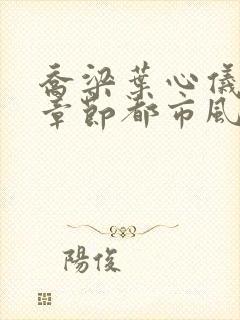 喬梁葉心儀
章節都市風
陽俊